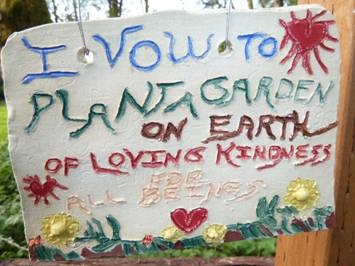 I VOW TO
PLANT A GARDEN
ON EARTH
OF LOVING KINDNESS
FOR
ALL BEINGS